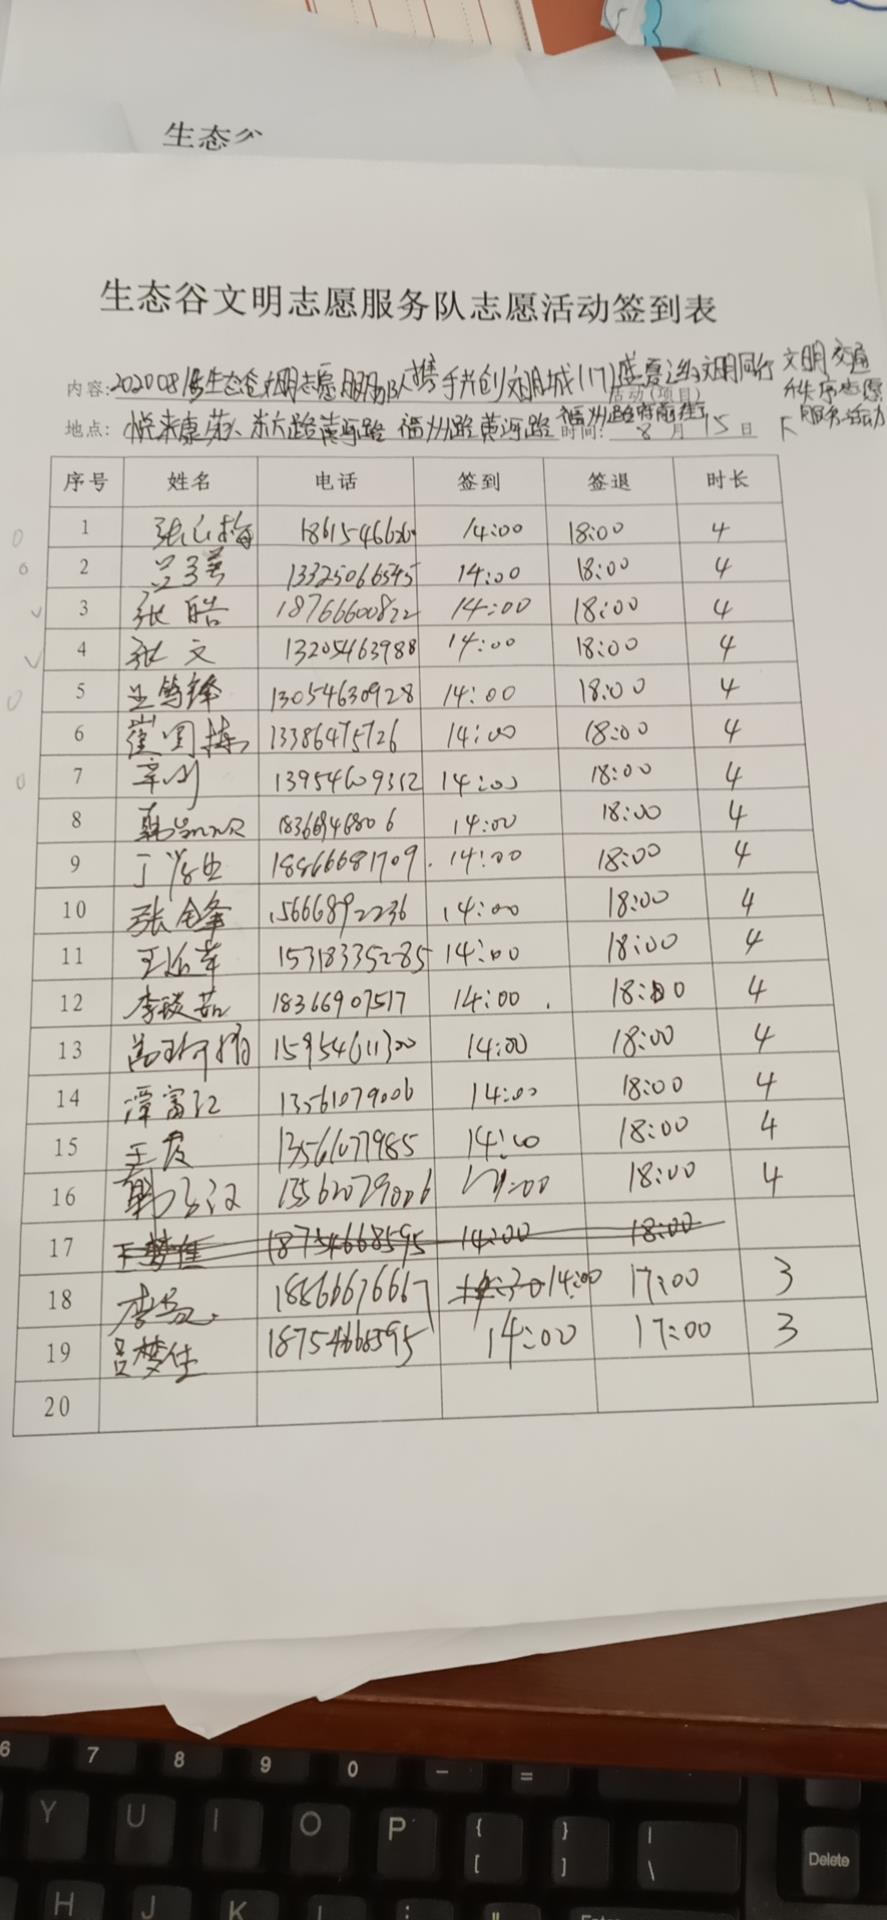 生态谷
生态谷文明志愿服务队志愿活动签到表
内容:20200815生态谷文明志愿服务队携手共创文明城(17)盛夏 文明同行 文明交通
秩序志愿
服务活动
活动(项目)
地点: 悦来康 东六路黄河路 福州路黄河路 福州路府前街
时间: 8 月 15 日 下
序号 姓名 电话 签到 签退 时长
1 14:00 18:00 4
2 13325066545 14:00 18:00 4
3 张皓 18766600822 14:00 18:00 4
4 张文 13205463988 14:00 18:00 4
5 王笃锋 13054630928 14:00 18:00 4
6 13386475726 14:00 18:00 4
7 辛刚 13954609312 14:00 18:00 4
8 18366946806 14:00 18:00 4
9 18866681709 14:00 18:00 4
10 张金峰 15666892236 14:00 18:00 4
11 15318335285 14:00 18:00 4
12 李琰茹 18366907517 14:00 18:00 4
13 15954611300 14:00 18:00 4
14 谭富江 13561079006 14:00 18:00 4
15 王霞 13561077985 14:00 18:00 4
16 14:00 18:00 4
17 王梦佳 18754668595 14:00 18:00
18 18866676667 14:00 17:00 3
19 吕梦佳 18754668595 14:00 17:00 3
20
6 7 8 9 0 - =
Y U I O P { [ } ] | \ Delete
H J K L : ; "
Enter